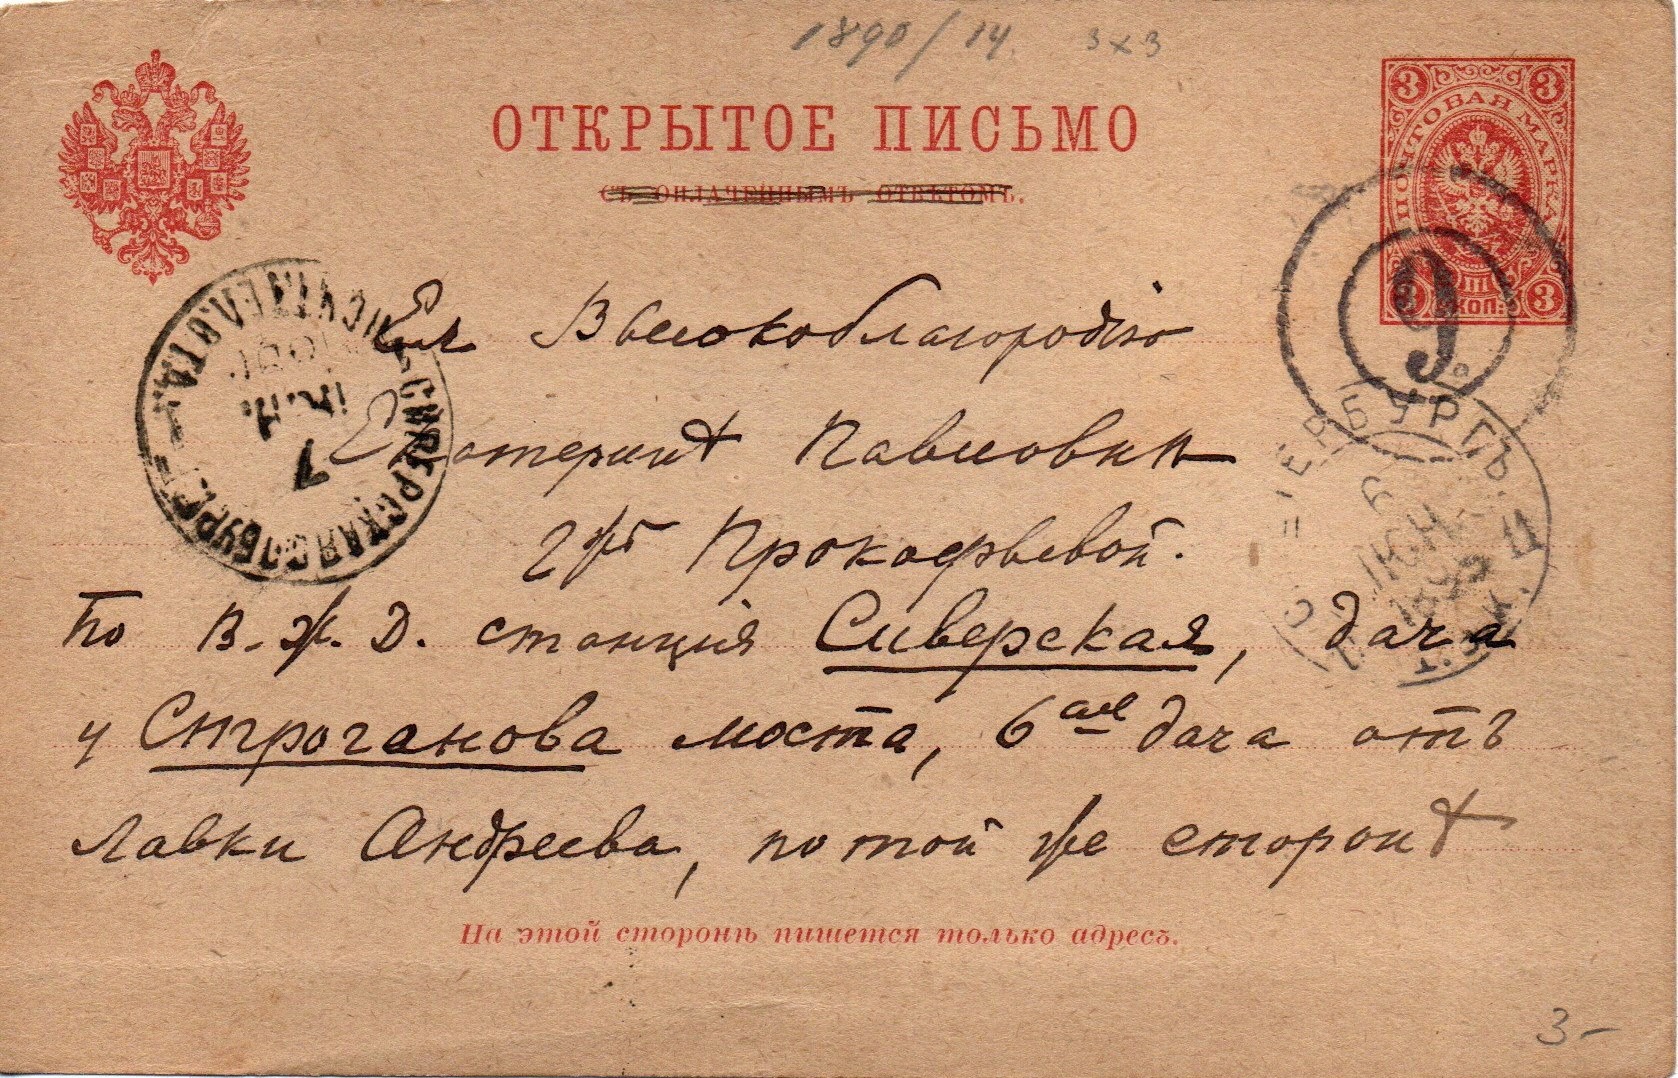 1890/14. 3x3
ОТКРЫТОЕ ПИСЬМО
СЪ ОПЛАЧЕННЫМЪ ОТВѢТОМЪ.
3 3
ПОЧТОВАЯ МАРКА
3 КОП. 3
9
Ея Высокоблагородію
Екатеринѣ Павловнѣ
Г-жѣ Прокофьевой.
По В.Ж.Д. станція Сиверская, дача
у Строганова моста, 6ая дача отъ
лавки Андреева, по той же сторонѣ
На этой сторонѣ пишется только адресъ.
СИВЕРСКАЯ С.П.БУРГ
7
ТЕРБУРГЪ
6
ІЮН
3-